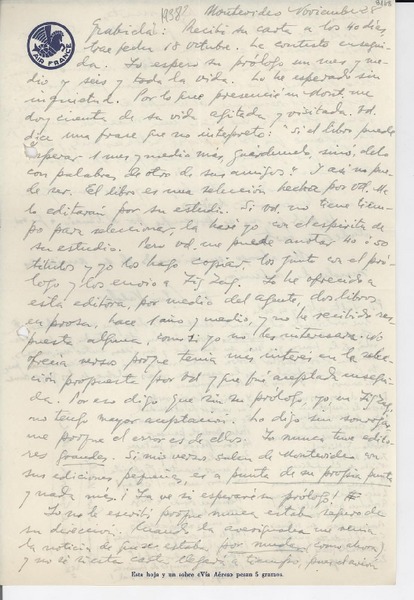 1938?
Montevideo Noviembre 28
AIR FRANCE
Gabriela: Recibí su carta a los 40 días,
trae fecha 18 octubre. Le contesto ensegui-
da. Yo espero su prólogo un mes y me-
dio y seis y toda la vida. Lo he esperado sin
inquietud. Por lo que presencié en Mont. me
doy cuenta de su vida agitada y visitada. Vd.
dice una frase que no interpreto: "Si el libro puede
esperar 1 mes y medio más, guárdemelo, sino, délo
con palabras de otro de sus amigos". Y así no pue-
de ser. El libro es una selección hecha por vd.
lo editarán por su estudio. Si vd. no tiene tiem-
po para seleccionar, la haré yo con el espíritu de
su estudio. Pero vd. me puede anotar 40 o 50
títulos y yo los hago copiar, los junto con el pró-
logo y los envío a Zig Zag. Yo he ofrecido a
esta editora, por medio del agente, dos libros
en prosa, hace 1 año y medio, y no he recibido res-
puesta alguna, como si yo no les interesara. No
ofrecía verso porque tenía más interés en la selec-
ción propuesta por vd y que fué aceptada ensegui-
da. Por eso digo que sin su prólogo, yo en Zig Zag,
no tengo mayor aceptación. Lo digo sin sonrojar-
me porque el error es de ellos. Yo nunca tuve edito-
res grandes. Si mis versos salen de Montevideo en
sus ediciones pequeñas, es a punta de su propia punta
y nada más. ¡Ya ve si esperaré su prólogo!
Yo no le escribí porque nunca estaba segura de
su dirección. Cuando la averiguaba me venía
la noticia de que se estaba por mudar
y no si esta carta llegará a tiempo,
Esta hoja y un sobre «Vía Aérea» pesan 5 gramos.